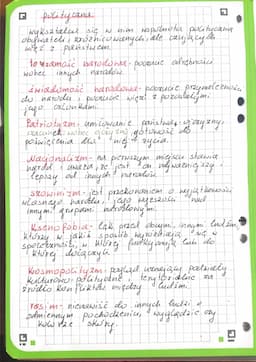 polityczna
wykształca się w nim wspólnota polityczna
obywateli zróżnicowanych, ale czujących
więź z państwem.
tożsamość narodowa - poczucie odrębności
wobec innych narodów.
świadomość narodowa - poczucie przynależności
do narodu i poczucie więzi z pozostałymi
jego członkami.
Patriotyzm - umiłowanie państwa, ojczyzny,
szacunek wobec gotowość do
poświęcenia dla niej życia.
Nacjonalizm - na pierwszym miejscu stawia
naród i uważa, że jest on najważniejszy i
lepszy od innych narodów.
szowinizm - jest przekonaniem o wyjątkowości
własnego narodu, jego wyższości nad
innymi grupami narodowymi.
Ksenofobia - lęk przed obcymi, innymi ludźmi,
którzy w jakiś sposób wyróżniają się w
społeczności, w której funkcjonują lub do
której dołączyli.
Kosmopolityzm - pogląd uznający podziały
kulturowo-polityczne i terytorialne za
źródło konfliktów między ludźmi.
rasizm - nienawiść do innych ludzi o
odmiennym pochodzeniu, wyglądzie czy
kolorze skóry.